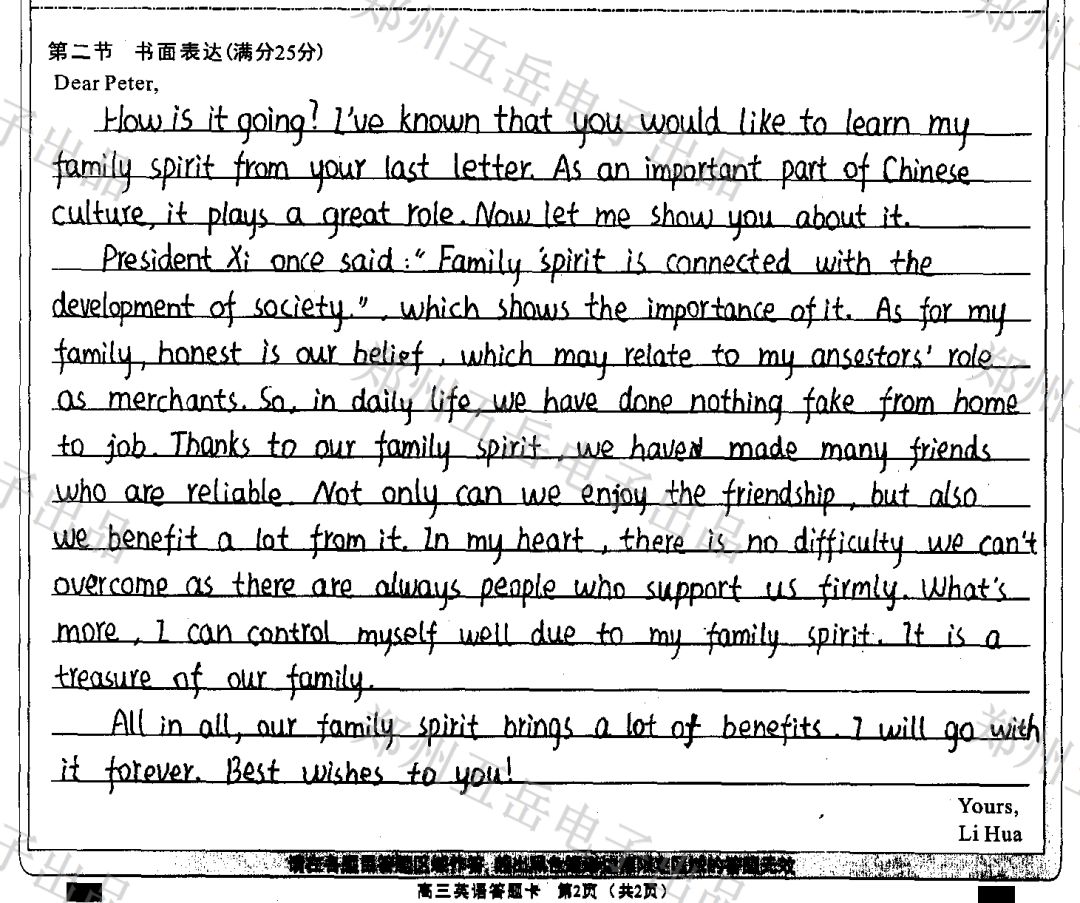 第二节 书面表达(满分25分)
Dear Peter,
How is it going? I've known that you would like to learn my
family spirit from your last letter. As an important part of Chinese
culture, it plays a great role. Now let me show you about it.
President Xi once said:" Family spirit is connected with the
development of society.", which shows the importance of it. As for my
family, honest is our belief, which may relate to my ansestors' role
as merchants. So, in daily life, we have done nothing fake from home
to job. Thanks to our family spirit, we have made many friends
who are reliable. Not only can we enjoy the friendship, but also
we benefit a lot from it. In my heart, there is no difficulty we can't
overcome as there are always people who support us firmly. What's
more, I can control myself well due to my family spirit. It is a
treasure of our family.
All in all, our family spirit brings a lot of benefits. I will go with
it forever. Best wishes to you!
Yours,
Li Hua
高三英语答题卡 第2页(共2页)
郑州五岳电子出品